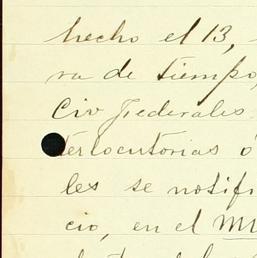 hecho el 13,
ra de tiempo,
Civ Federales.
terlocutorias ó
les se notifi
cio, en el